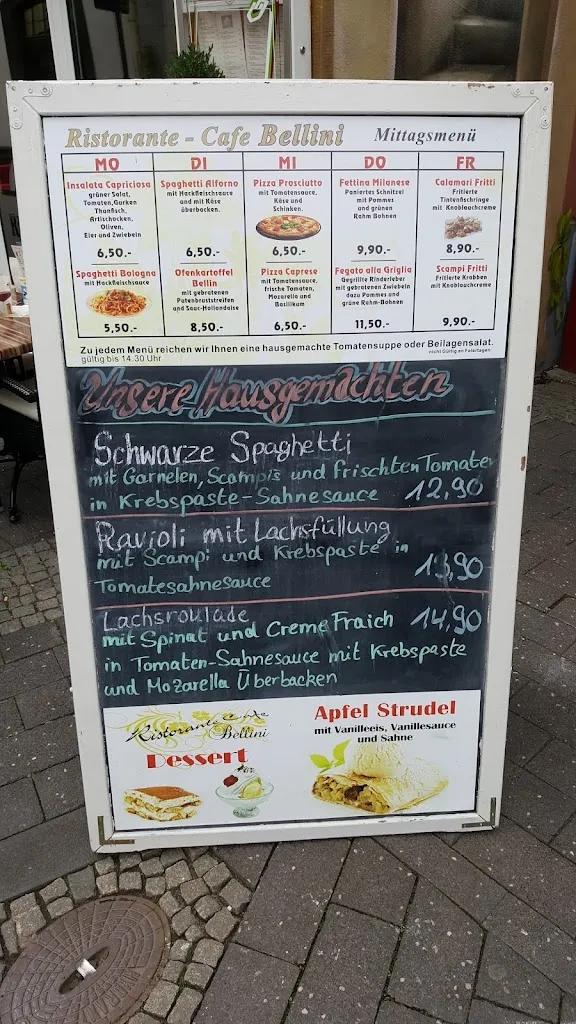 Ristorante - Cafe Bellini Mittagsmenü
MO
Insalata Capriciosa
grüner Salat,
Tomaten,Gurken
Thunfisch,
Artischocken,
Oliven,
Eier und Zwiebeln
6,50.-
Spaghetti Bologna
mit Hackfleischsauce
5,50.-
DI
Spaghetti Alforno
mit Hackfleischsauce
und mit Käse
überbacken.
6,50.-
Ofenkartoffel
Bellin
mit gebratenen
Putenbruststreifen
und Sauc-Hollondaise
8,50.-
MI
Pizza Prosciutto
mit Tomatensauce,
Käse und
Schinken.
6,50.-
Pizza Caprese
mit Tomatensauce,
frische Tomaten,
Mozarella und
Basilikum
6,50.-
DO
Fettina Milanese
Paniertes Schnitzel
mit Pommes
und grünen
Rahm Bohnen
9,90.-
Fegato alla Griglia
Gegrillte Rinderleber
mit gebratenen Zwiebeln
dazu Pommes und
grüne Rahm-Bohnen
11,50.-
FR
Calamari Fritti
Fritierte
Tintenfischringe
mit Knoblauchcreme
8,90.-
Scampi Fritti
Fritierte Krabben
mit Knoblauchcreme
9,90.-
Zu jedem Menü reichen wir Ihnen eine hausgemachte Tomatensuppe oder Beilagensalat.
gültig bis 14.30 Uhr
nicht Gültig an Feiertagen
Unsere Hausgemachten
Schwarze Spaghetti
mit Garnelen, Scampis und frischten Tomaten
in Krebspaste-Sahnesauce 12,90
Ravioli mit Lachsfüllung
mit Scampi und Krebspaste in
Tomatesahnesauce 13,90
Lachsroulade
mit Spinat und Creme Fraich 14,90
in Tomaten-Sahnesauce mit Krebspaste
und Mozarella Überbacken
Ristorante Cafe
Bellini
Dessert
Apfel Strudel
mit Vanilleeis, Vanillesauce
und Sahne